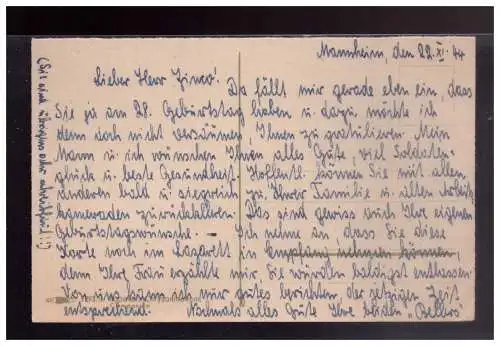 Mannheim, den 22. XI. 44
Lieber Herr Zinco! Da fällt mir gerade eben ein, dass
Sie ja am 28. Geburtstag haben u. dazu möchte ich
denn doch nicht versäumen, Ihnen zu gratulieren. Mein
Mann u. ich wünschen Ihnen alles Gute, viel Soldaten-
glück u. beste Gesundheit. Hoffentl. können Sie mit allen
anderen bald u. siegreich zu Ihrer Familie u. allen Arbeits
kameraden zurückkehren. Das sind gewiss auch Ihre eigenen
Geburtstagswünsche. - Ich nehme an, dass Sie diese
Karte noch im Lazarett in Empfang nehmen können,
denn Ihre Frau erzählte mir, Sie würden baldigst entlassen.
Von uns kann ich nur gutes berichten, der jetzigen Zeit
entsprechend. Nochmals alles Gute Ihre beiden Bellers
(Sie sind übrigens